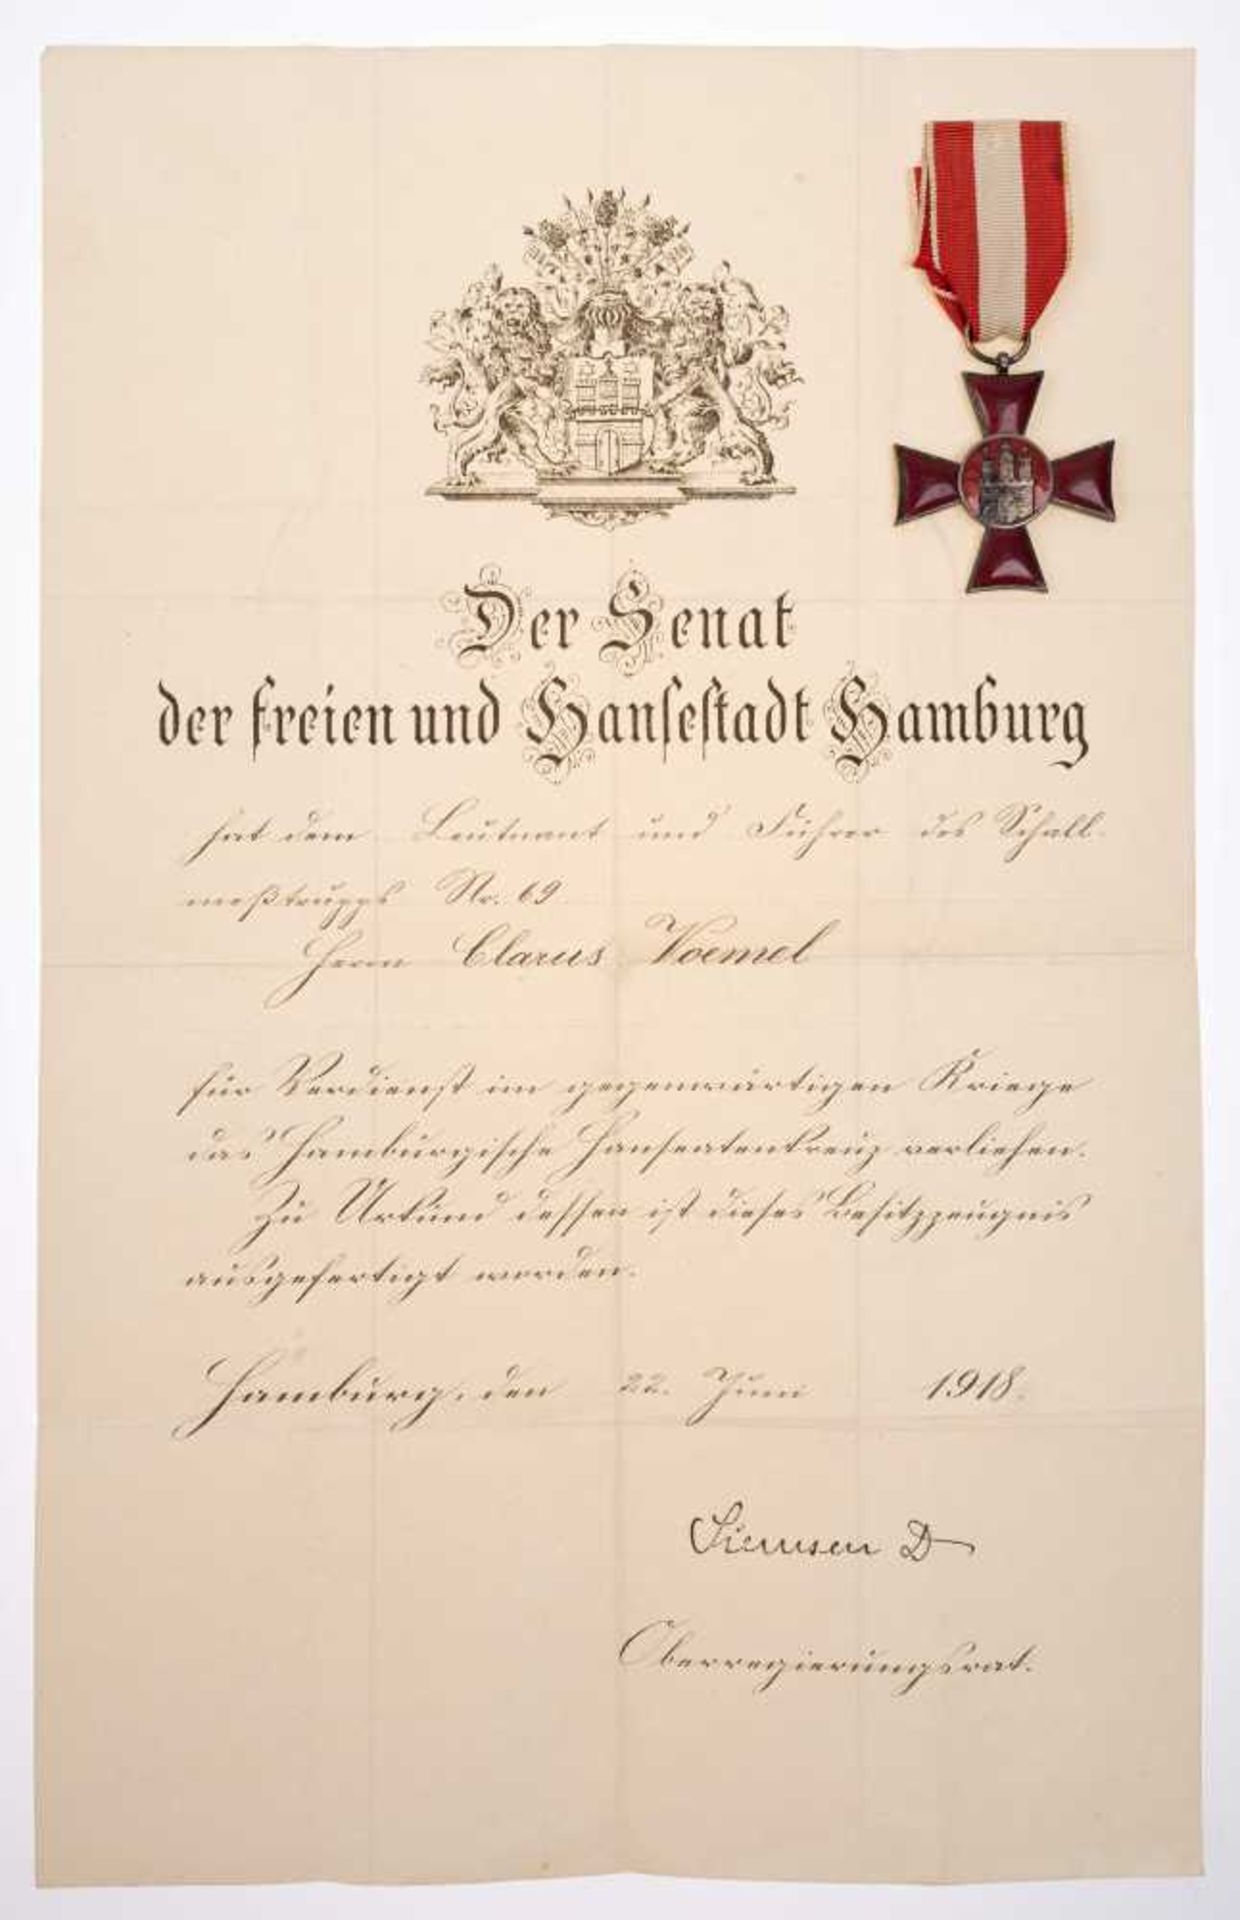 Der Senat
der freien und Hansestadt Hamburg
hat dem Leutnant und Führer des Schall-
meßtrupps Nr. 69
Herrn Clarus Voemel
für Verdienst im gegenwärtigen Kriege
das Hamburgische Hanseatenkreuz verliehen.
Zu Urkund dessen ist dieses Besitzzeugnis
ausgefertigt worden.
Hamburg, den 22. Juni 1918.
Siemsen D
Oberregierungsrat.